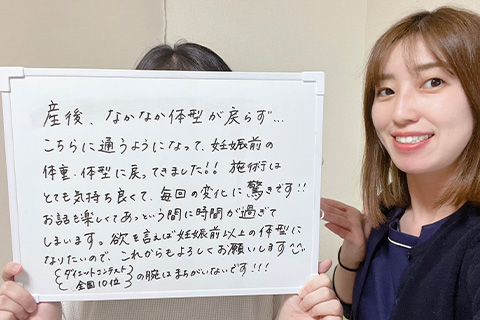 産後、なかなか体型が戻らず…
こちらに通うようになって、妊娠前の
体重・体型に戻ってきました!! 施術は
とても気持ち良くて、毎回の変化に驚きです!!
お話も楽しくてあっという間に時間が過ぎて
しまいます。欲を言えば妊娠前以上の体型に
なりたいので、これからもよろしくお願いします^^
{ダイエットコンテスト 全国10位}の腕はまちがいないです!!!